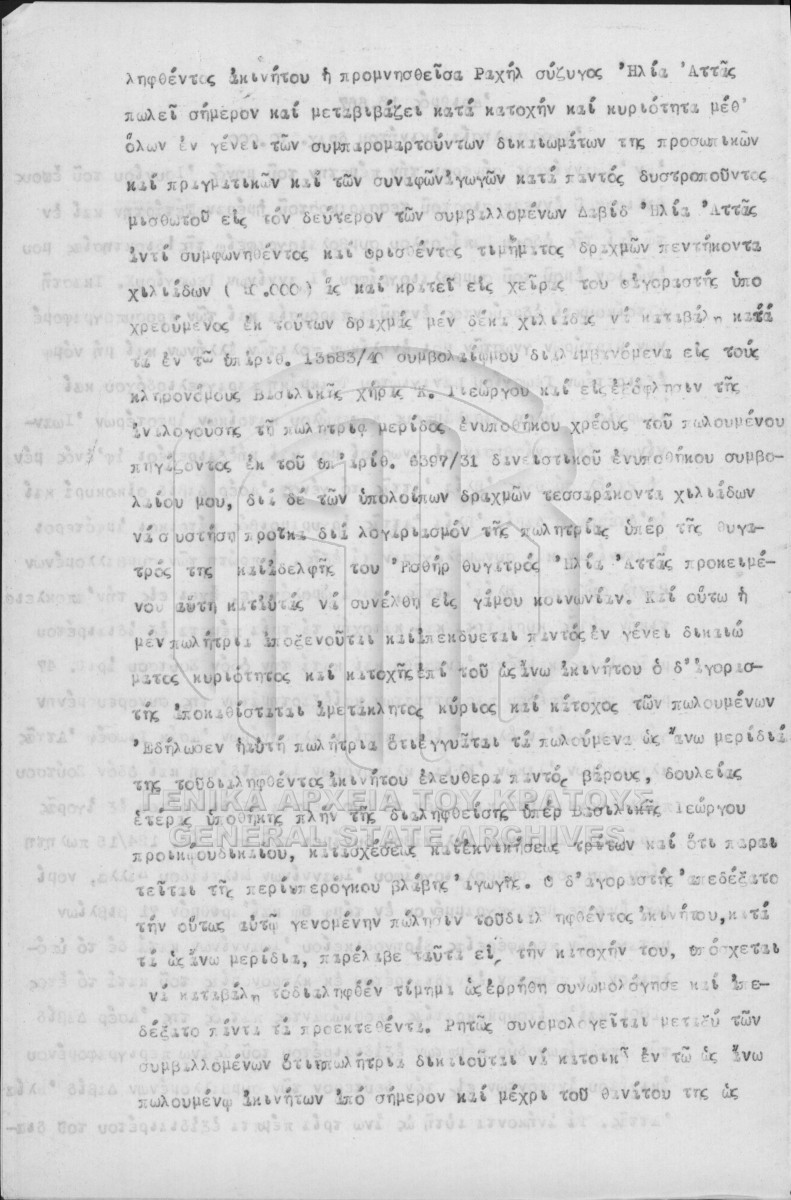 ληφθέντος ἀκινήτου ἡ προμνησθεῖσα Ραχήλ σύζυγος Ἠλία Ἀττᾶς
πωλεῖ σήμερον καί μεταβιβάζει κατά κατοχήν καί κυριότητα μέθ'
ὅλων ἐν γένει τῶν συμπαρομαρτούντων δικαιωμάτων της προσωπικῶν
καί πραγματικῶν καί τῶν συναφῶν ἀγωγῶν κατά παντός δυστροποῦντος
μισθωτοῦ εἰς τόν δεύτερον τῶν συμβαλλομένων Δαβίδ Ἠλία Ἀττᾶς
ἀντί συμφωνηθέντος καί ὁρισθέντος τιμήματος δραχμῶν πεντήκοντα
χιλιάδων ( .000) ἅς καί κρατεῖ εἰς χεῖρας του ὁ ἀγοραστής ὑπο
χρεούμενος ἐκ τούτων δραχμάς μέν δέκα χιλιάδας νά καταβάλῃ κατά
τά ἐν τῶ ὑπ'ἀριθ. 13583/40 συμβολαίῳ μου διαλαμβανόμενα εἰς τούς
κληρονόμους Βασιλικῆς χήρας Κ. Γεώργου καί εἰς ἐξόφλησιν τῆς
ἀναλογούσης τῆ πωλητρίᾳ μερίδος ἐνυποθήκου χρέους τοῦ πωλουμένου
πηγάζοντος ἐκ τοῦ ὑπ'ἀριθ. 6397/31 δανειστικοῦ ἐνυποθήκου συμβο-
λαίου μου, διά δέ τῶν ὑπολοίπων δραχμῶν τεσσαράκοντα χιλιάδων
νά συστήσῃ προῖκα διά λογαριασμόν τῆς πωλητρίας ὑπέρ τῆς θυγα-
τρός της καί ἀδελφῆς του Ἐσθήρ θυγατρός Ἠλία Ἀττᾶς προκειμέ-
νου αὕτη κατ'αὐτάς νά συνέλθῃ εἰς γάμου κοινωνίαν. Καί οὕτω ἡ
μέν πωλήτρια ἀποξενοῦται καί ἀπεκδύεται παντός ἐν γένει δικαιώ
ματος κυριότητος καί κατοχῆς ἐπί τοῦ ὡς ἄνω ἀκινήτου ὁ δ'ἀγορασ-
τής ἀποκαθίσταται ἀμετάκλητος κύριος καί κάτοχος τῶν πωλουμένων
Ἐδήλωσεν ἡ αὐτή πωλήτρια ὅτι ἐγγυᾶται τά πωλούμενα ὡς ἄνω μερίδια
της τοῦ διαληφθέντος ἀκινήτου ἐλεύθερα παντός βάρους, δουλείας
ἑτέρας ὑποθήκης πλήν τῆς διαληφθείσης ὑπέρ Βασιλικῆς Γεώργου
προικῴου δικαίου, κατασχέσεως καί ἐκνικήσεως τρίτων καί ὅτι παραι
τεῖται τῆς περί ὑπερόγκου βλάβης ἀγωγῆς. Ὁ δ'ἀγοραστής ἀπεδέξατο
τήν οὕτως αὐτῷ γενομένην πώλησιν τοῦ διαληφθέντος ἀκινήτου, κατά
τά ὡς ἄνω μερίδια, παρέλαβε ταῦτα εἰς τήν κατοχήν του, ὑπόσχεται
νά καταβάλῃ τό διαληφθέν τίμημα ὡς ἐρρήθη συνωμολόγησε καί ἀπε-
δέξατο πάντα τά προεκτεθέντα. Ρητῶς συνομολογεῖται μεταξύ τῶν
συμβαλλομένων ὅτι ἡ πωλήτρια δικαιοῦται νά κατοικῆ ἐν τῶ ὡς ἄνω
πωλουμένῳ ἀκινήτων ἀπό σήμερον καί μέχρι τοῦ θανάτου της ὡς
ΓΕΝΙΚΑ ΑΡΧΕΙΑ ΤΟΥ ΚΡΑΤΟΥΣ
GENERAL STATE ARCHIVES